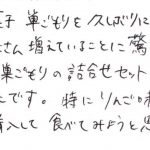 子 巣ごもりを久しぶりに
さん 増えていることに驚
巣ごもりの詰合せセット
です。特にりんご
購入して食べてみようと思